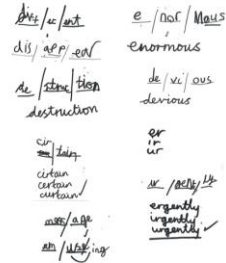 diff/er/ent
dis/app/ear
de/struc/tion
destruction
cir
/tain
cirtain
certain
curtain ✓
mess/age
am/us/ing
e/nor/mous
enormous
de/vi/ous
devious
er
ir
ur
ur/gent/ly
ergently
irgently
urgently ✓